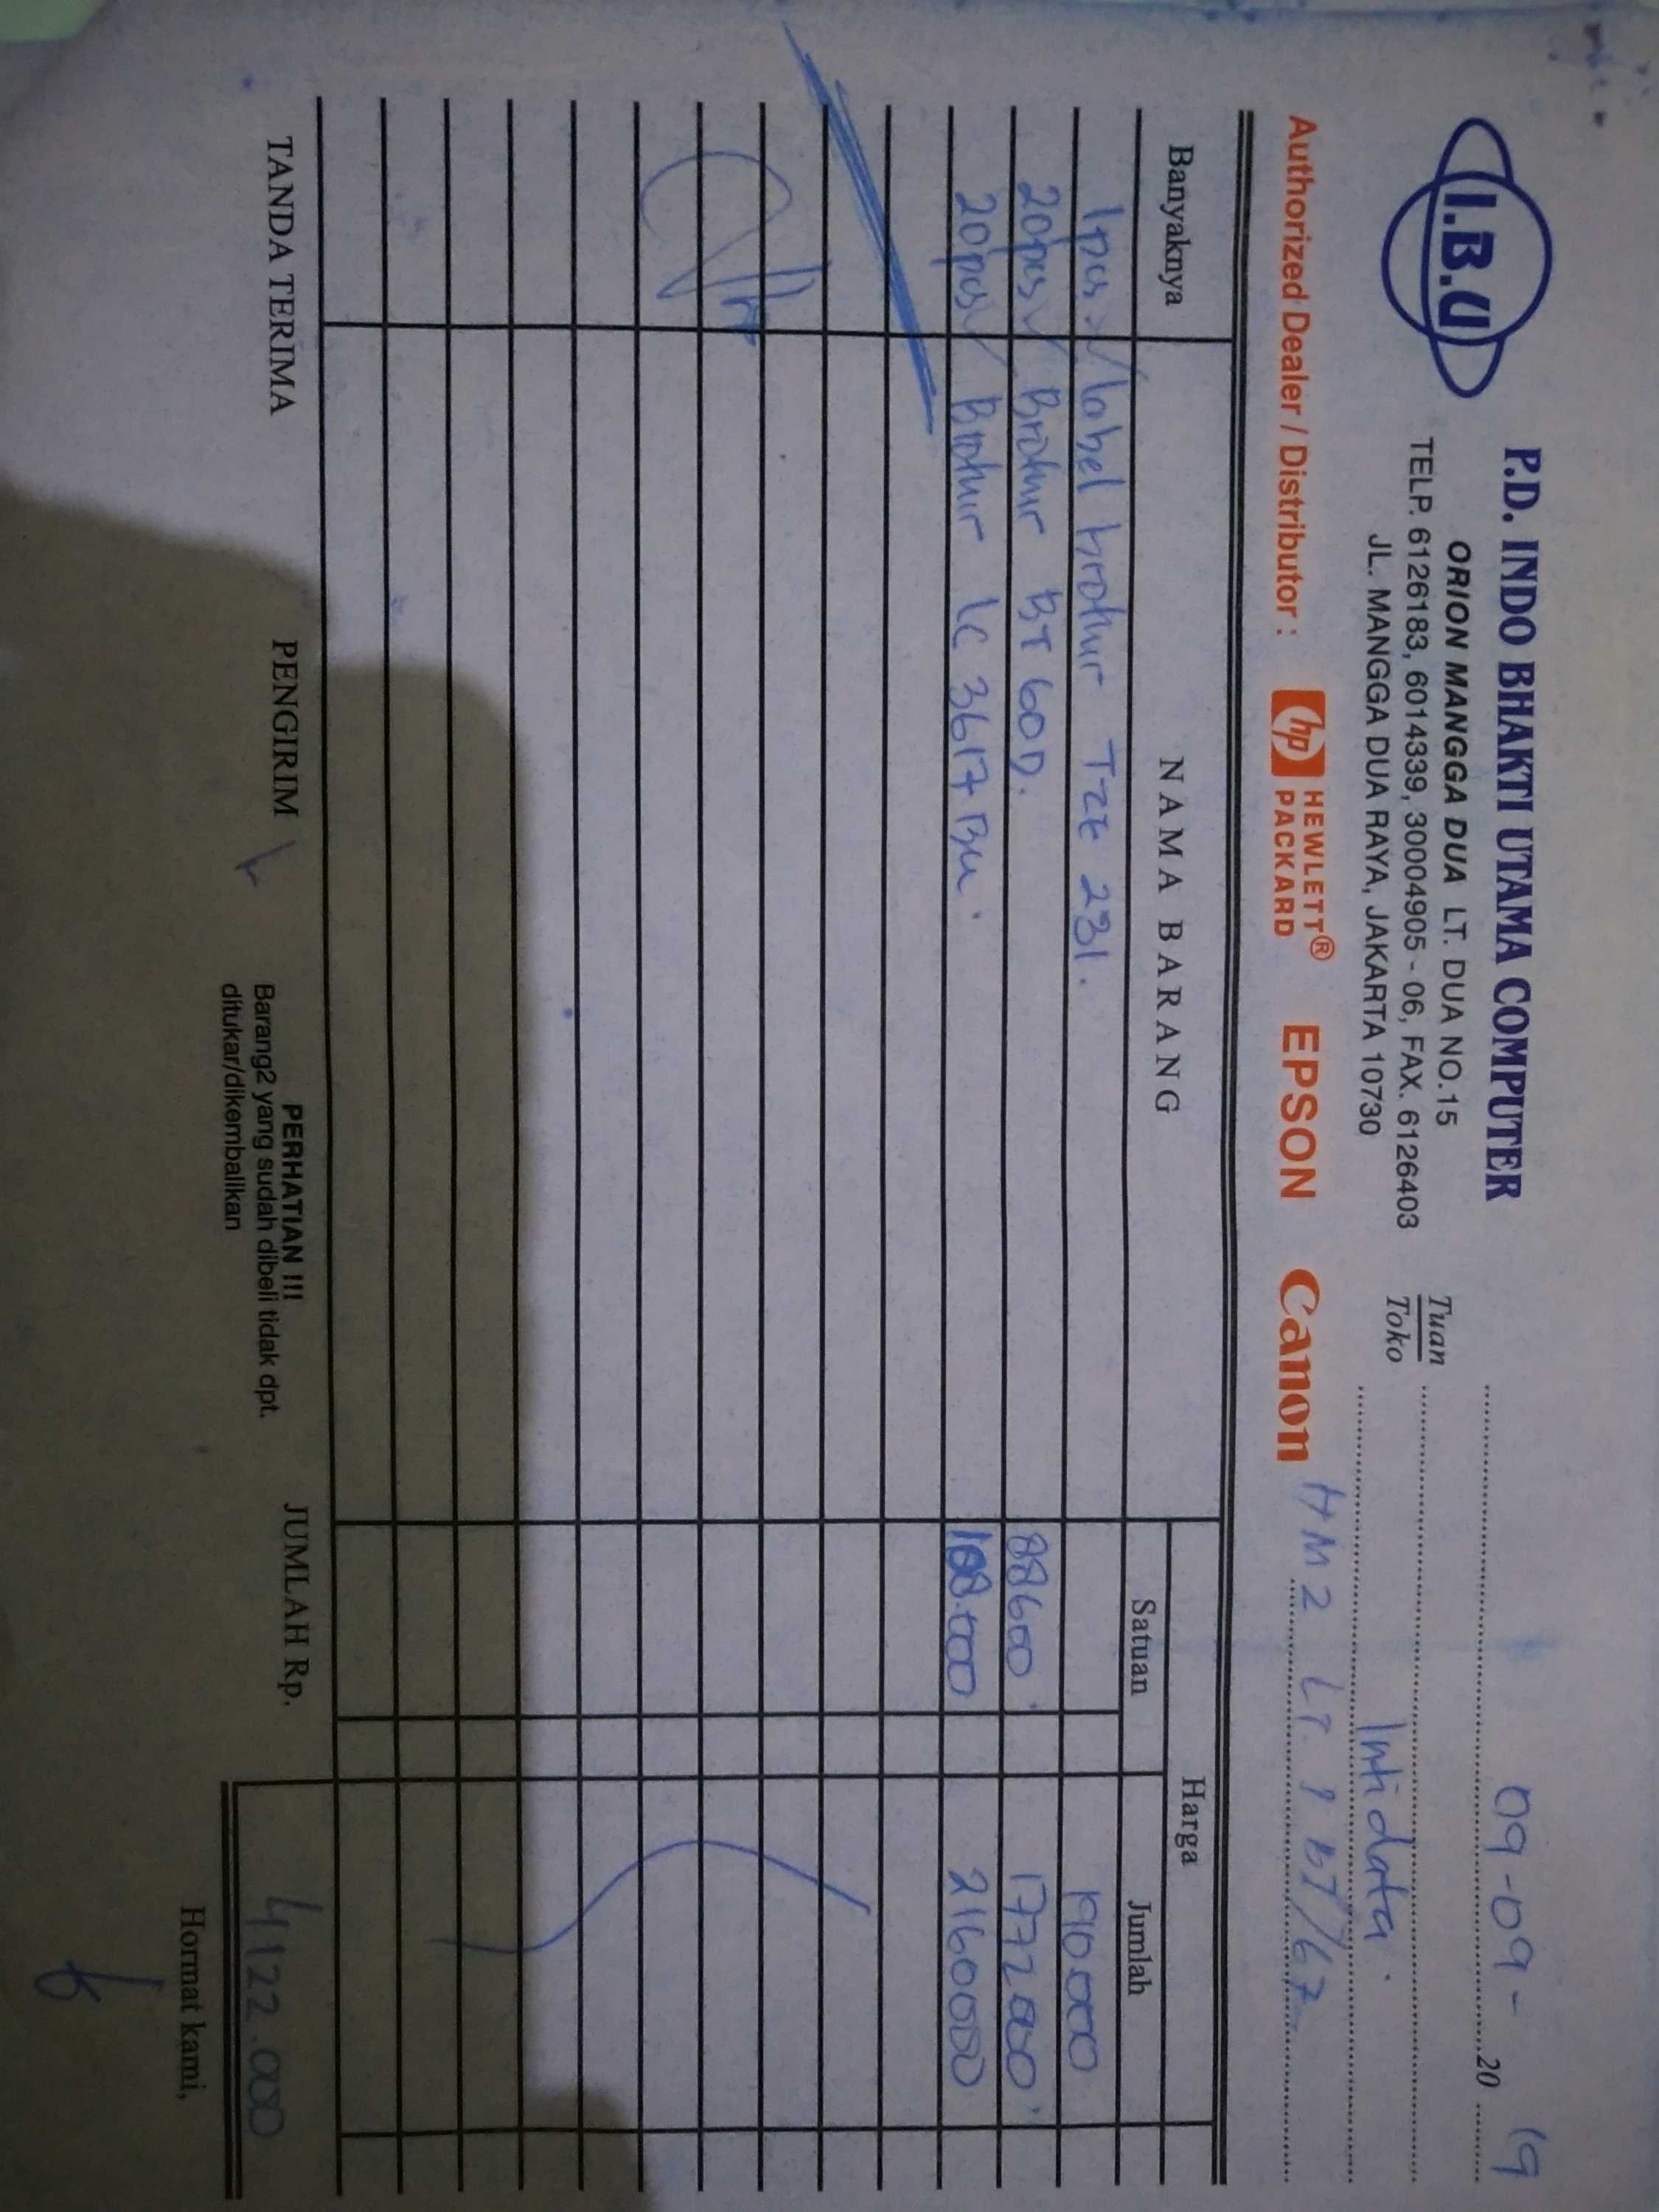 I.B.U
P.D. INDO BHAKTI UTAMA COMPUTER
ORION MANGGA DUA LT. DUA NO.15
TELP. 6126183, 6014339, 30004905 - 06, FAX. 6126403
JL. MANGGA DUA RAYA, JAKARTA 10730
09-09- 20 19
Tuan
Toko
Inti data.
HM2 LT. 1 B7/67
Authorized Dealer / Distributor : hp HEWLETT® PACKARD EPSON Canon
Banyaknya NAMA BARANG Harga
Satuan Jumlah
1pcs label brother Tze 231. 190.000
20pcs Brother BT 60D. 88600 1772000
20pcs Brother LC 3617 Bu. 108.000 2160000
TANDA TERIMA PENGIRIM PERHATIAN !!! JUMLAH Rp. 4122.000
Barang2 yang sudah dibeli tidak dpt.
ditukar/dikembalikan
Hormat kami,